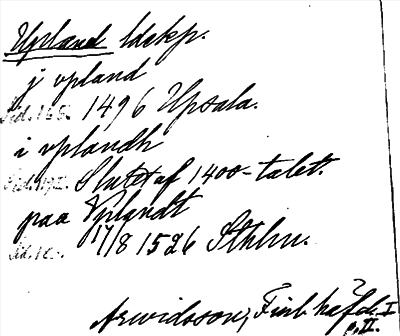 Upland ldskp.
j vpland
Sid. 165. 1496 Upsala.
i vplandh
Slutet af 1400-talet.
paa Vplandt
17/8 1526 Sthlm.
Arwidsson, Finl häfd. I
o. II.